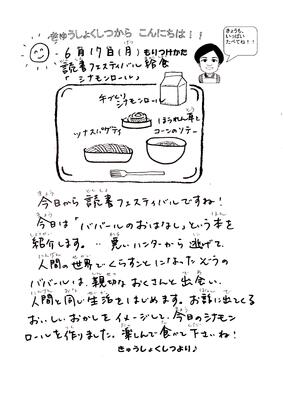 きゅうしょくしつから こんにちは！！
きょうも、
いっぱい
たべてね！！
6月17日(月) もりつけかた
読書フェスティバル給食
「シナモンロール」
手づくり
シナモンロール
ほうれん草と
コーンのソテー
ツナスパゲティ
今日から読書フェスティバルですね！
今日は「ババールのおはなし」という本を
紹介します。 悪いハンターから逃げて、
人間の世界でくらすことになったぞうの
ババールは、親切なおくさんと出会い、
人間と同じ生活をはじめます。お話に出てくる
おいしいおかしをイメージして、今日のシナモン
ロールを作りました。楽しんで食べて下さいね！
きゅうしょくしつより♪